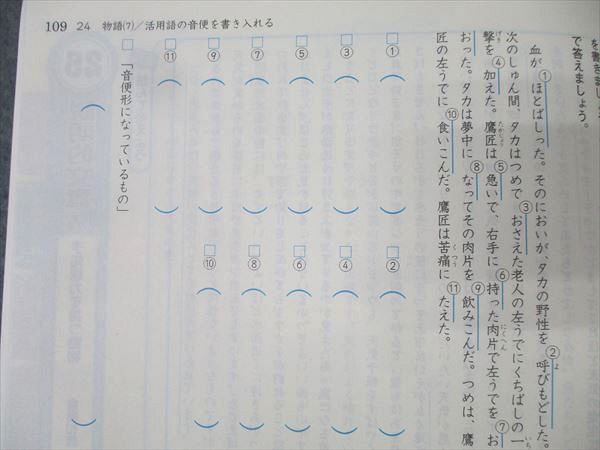 109 24 物語(7)/活用語の音便を書き入れる
で答えましょう。
血が①ほとばしった。そのにおいが、タカの野性を②呼びもどした。
よ
次のしゅん間、タカはつめで③おさえた老人の左うでにくちばしの一
いち
撃を④加えた。鷹匠は⑤急いで、右手に⑥持った肉片で左うでを⑦お
げき
たかじょう
にくへん
おった。タカは夢中に⑧なってその肉片を⑨飲みこんだ。つめは、鷹
匠の左うでに⑩食いこんだ。鷹匠は苦痛に⑪たえた。
くつう
□①( ) □②( )
□③( ) □④( )
□⑤( ) □⑥( )
□⑦( ) □⑧( )
□⑨( ) □⑩( )
□⑪( )
□「音便形になっているもの」
( )